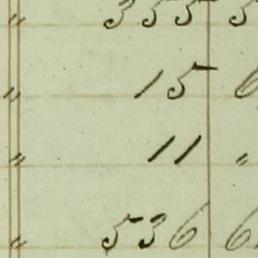 " 355 5
" 15 6
" 11 "
" 536 6